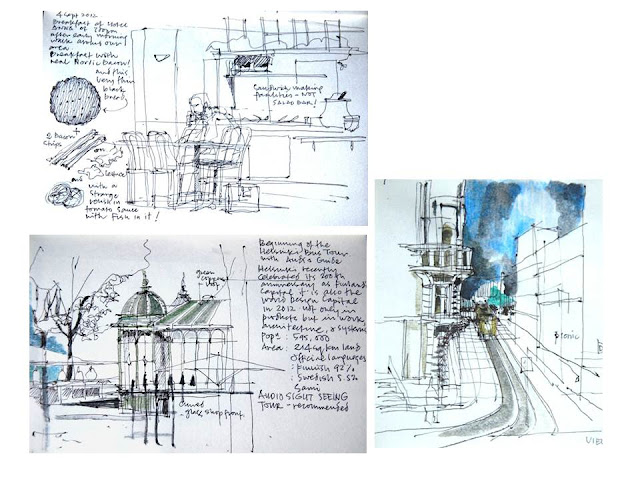 4 Sept 2012
Breakfast at Hotel
after early morning
walk around our
area
Breakfast with
real Nordic Bacon!
and this
very thin
black
bread
+
2 Bacon
chips
on
lettuce
and
with a
strange
relish in
tomato sauce
with Fish in it!
Sandwich making
facilities - NOT
SALAD BAR!
green
copper
roof
Curved
glass shopfront
Beginning of the
Helsinki Bus Tour
with Audio Guide
Helsinki recently
celebrated its 200th
anniversary as Finland
Capital & is also the
World Design Capital
in 2012 not only in
products but in work
architecture, & systems
Popn : 595,000
Area : 214 sq km land
Official languages
: Finnish 92%
: Swedish 5.5%
Sami
AUDIO SIGHT SEEING
TOUR - recommended